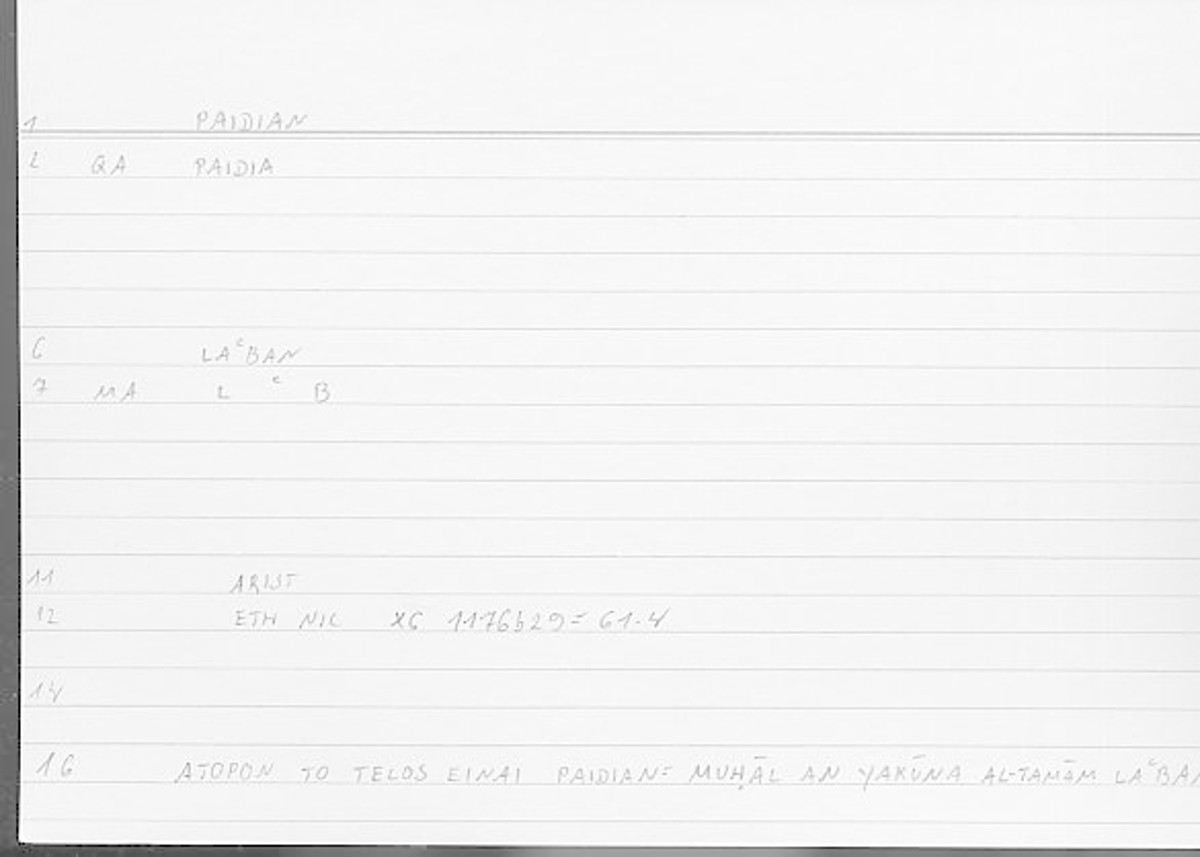 1 PAIDIAN
2 QA PAIDIA
6 LAᶜBAN
7 MA L ᶜ B
11 ARIST
12 ETH NIC X6 1176b29= 61.4
14
16 ATOPON TO TELOS EINAI PAIDIAN= MUḤĀL AN YAKŪNA AL-TAMĀM LAᶜBAN